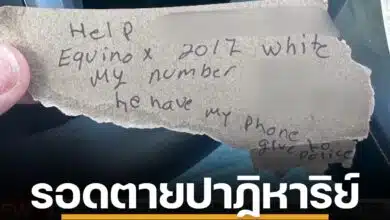 Help
Equinox 2017 white
My number
he have my phone
give to
police
รอดตายปาฏิหาริย์